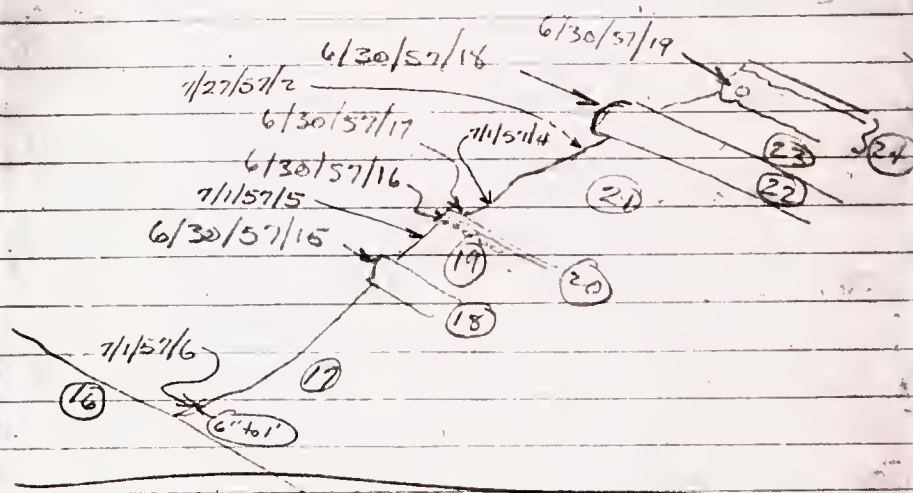 6/30/57/19
6/30/57/18
7/27/57/2
6/30/57/17
7/1/57/4
6/30/57/16
7/1/57/5
6/30/57/15
7/1/57/6
6" to 1'
16
17
18
19
20
21
22
23
24